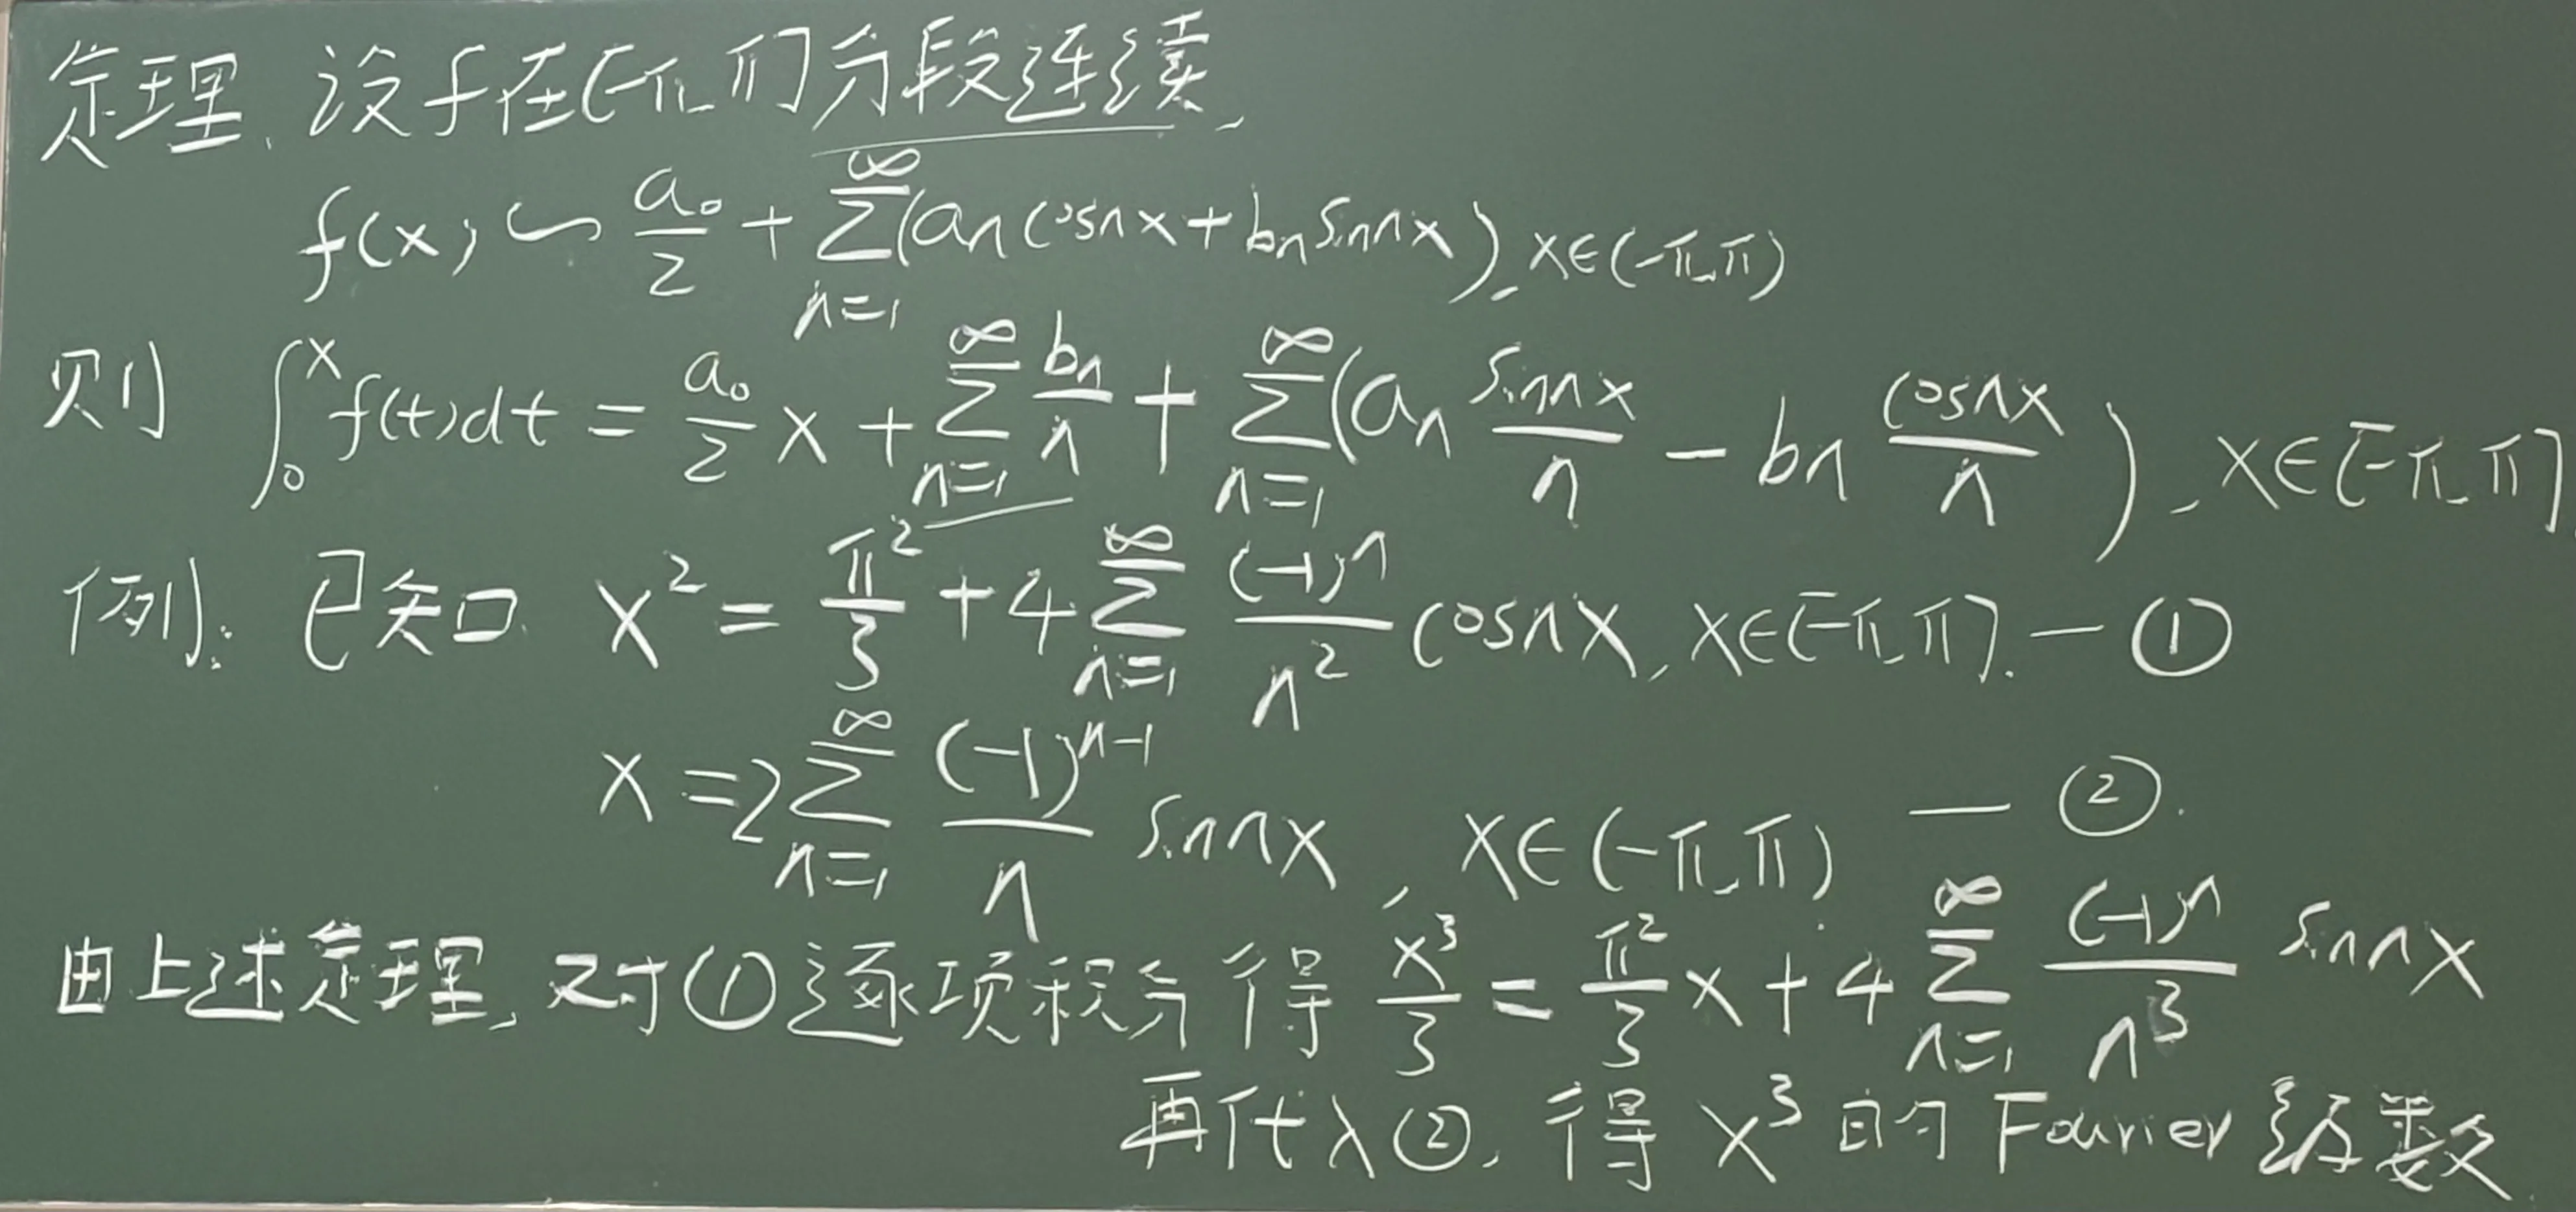 定理、设f在[-π,π]分段连续,
f(x) ∽ a₀/2 + ∑_{n=1}^{∞}(aₙcosnx + bₙsinnx), x∈(-π,π)
则 ∫₀ˣ f(t)dt = a₀/2 x + ∑_{n=1}^{∞} bₙ/n + ∑_{n=1}^{∞}(aₙ sinnx/n - bₙ cosnx/n), x∈[-π,π]
例: 已知 x² = π²/3 + 4∑_{n=1}^{∞} (-1)ⁿ/n² cosnx, x∈[-π,π]. — ①
x = 2∑_{n=1}^{∞} (-1)^{n-1}/n sinnx, x∈(-π,π) — ②.
由上述定理, 对①逐项积分得 x³/3 = π²/3 x + 4∑_{n=1}^{∞} (-1)ⁿ/n³ sinnx
再代入②, 得 x³ 的 Fourier 级数